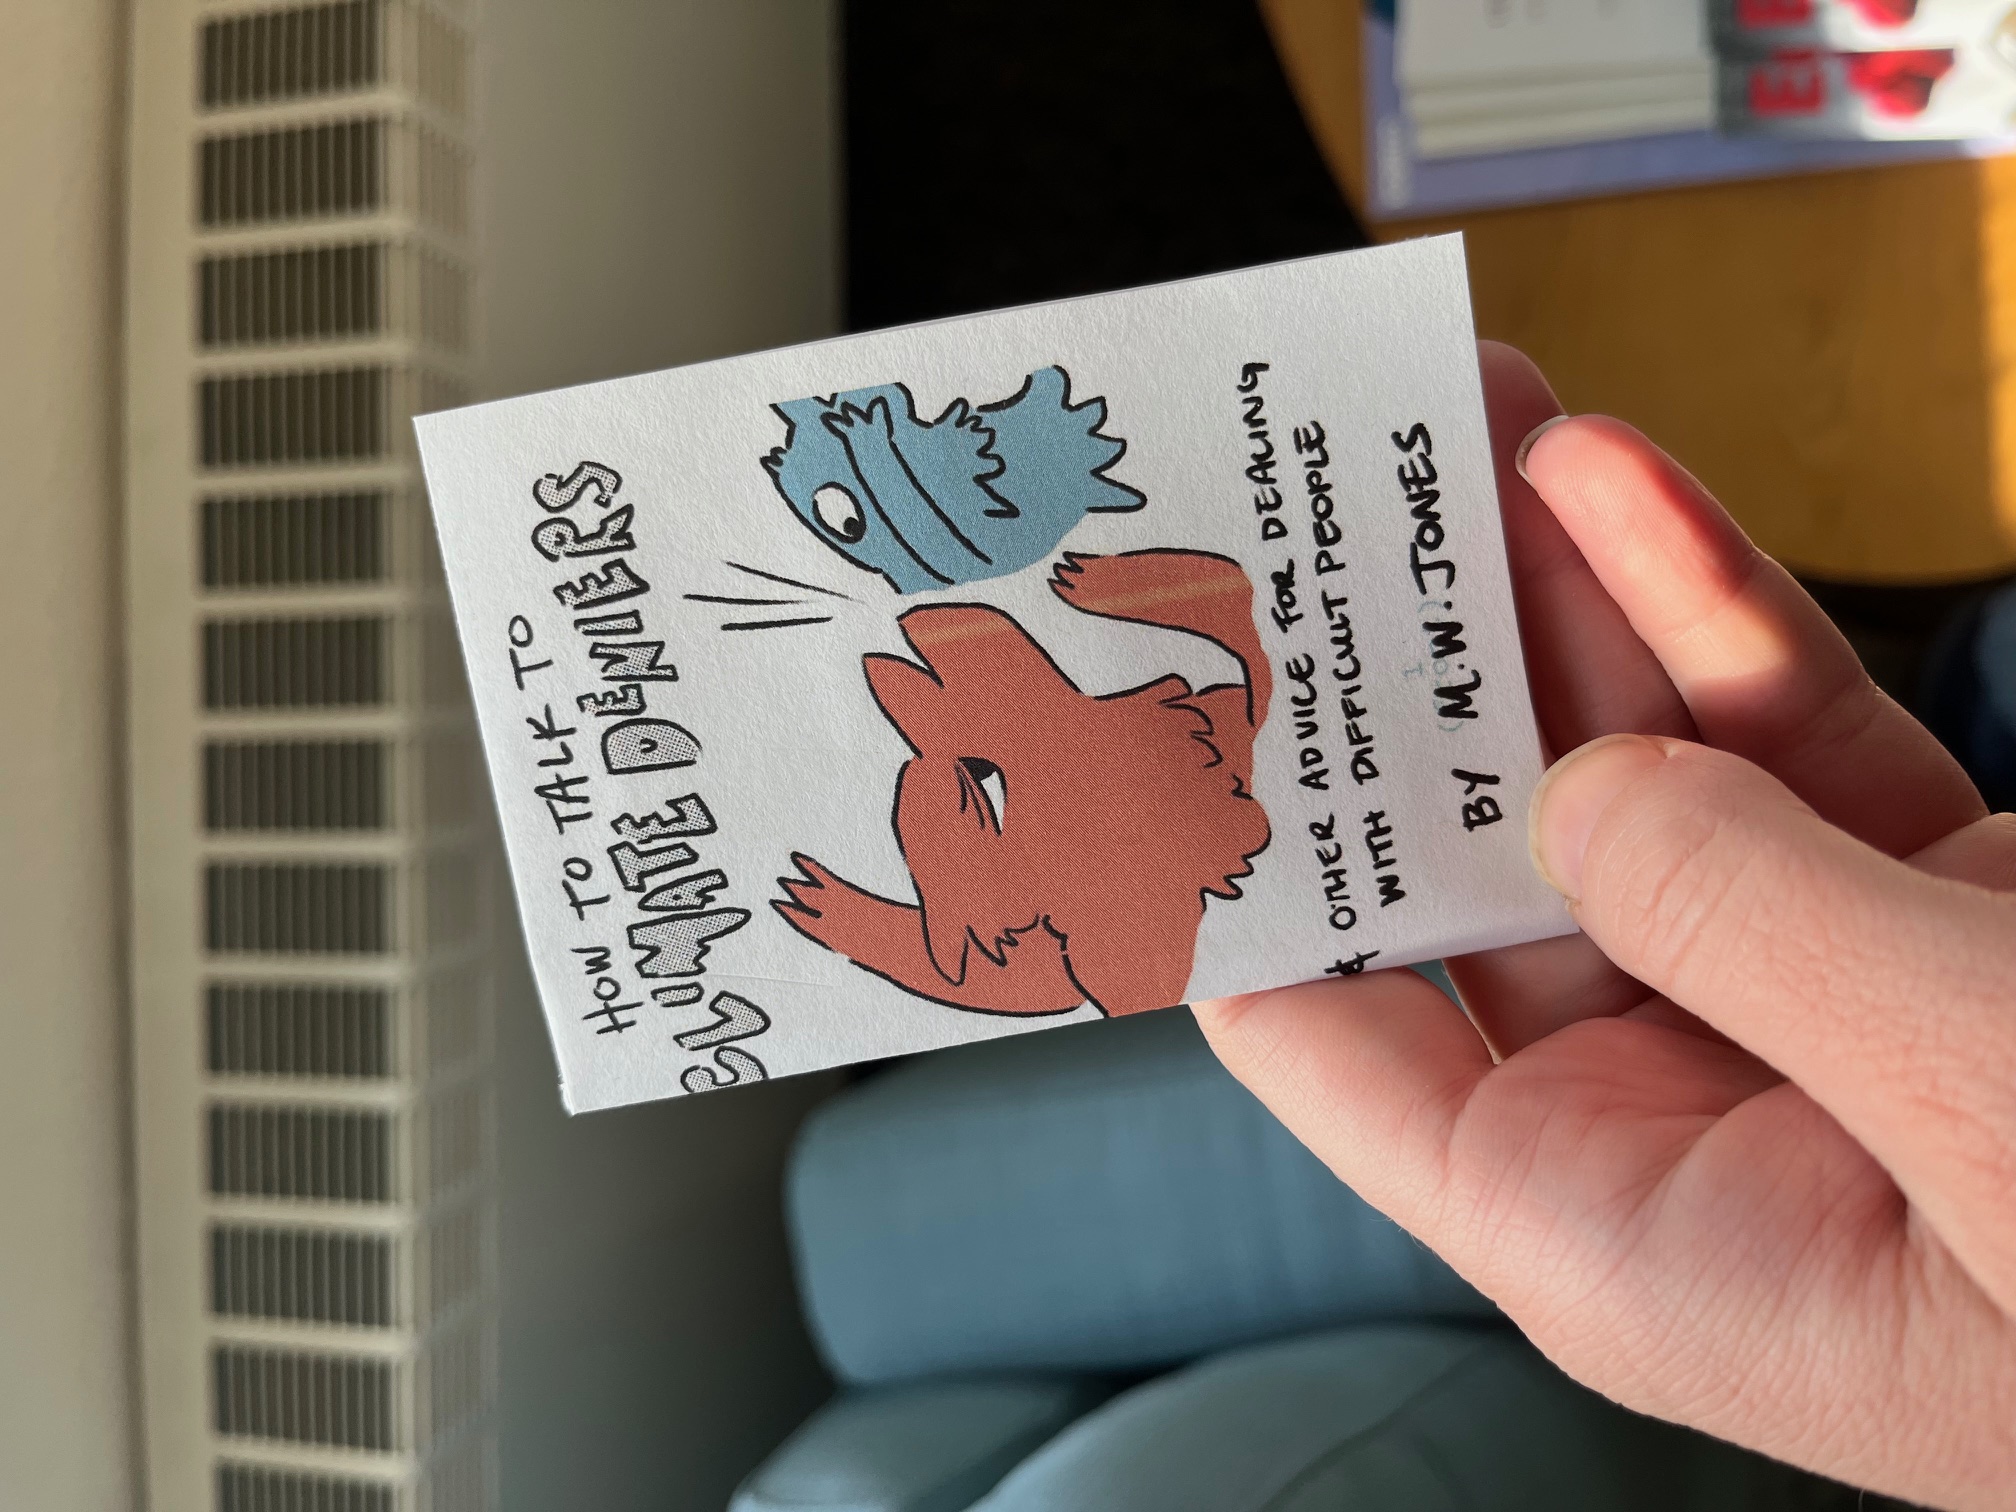 HOW TO TALK TO
CLIMATE DENIERS
& OTHER ADVICE FOR DEALING
WITH DIFFICULT PEOPLE
BY M.W. JONES